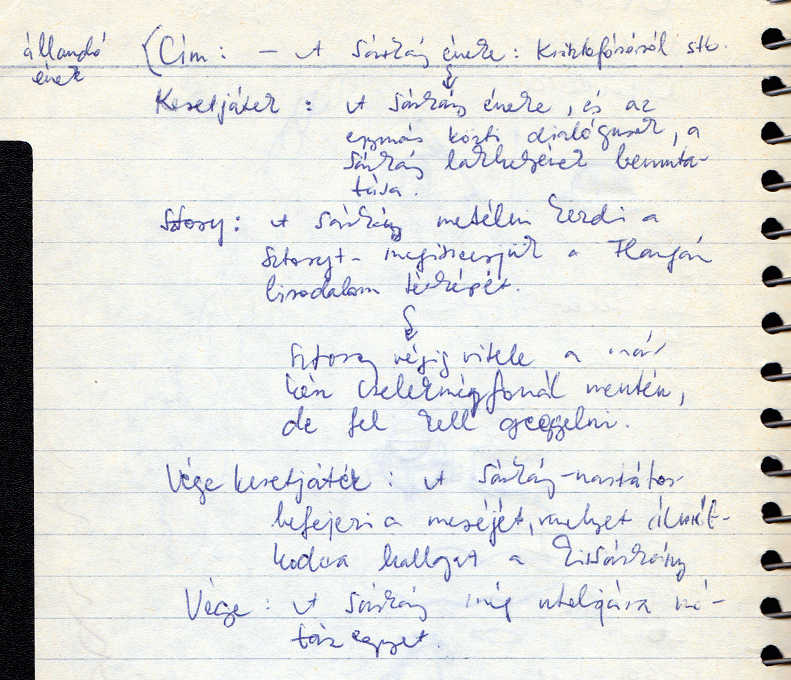 állandó ének
Cím: – A Sárkány éneke: Krisztofóróról stb.
Keretjáték: A Sárkány éneke, és az
egymás közti dialógusok, a
Sárkány lakhelyének bemuta-
tása.
Story: A Sárkány mesélni kezdi a
Storyt – megismerjük a
birodalom térképét.
Story végig vitele a már
kész cselekményfonál mentén,
de fel kell gegelni.
Vége keretjáték: A Sárkány-narrátor
befejezi a meséjét, melyet álmél-
kodva hallgat a Kissárkány
Vége: A Sárkány még utoljára nó-
tázik egyet.